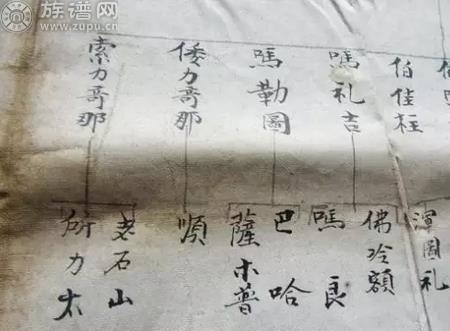 族谱网
www.zupu.cn
伯佳枉
嗎礼吉
嗎勒圖
倭力哥那
索力哥那
渾圖礼
佛玲額
嗎良
巴哈
薩木普
順
老石山
所力太